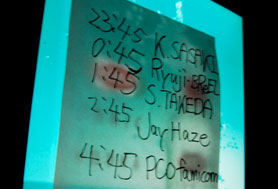 23:45 K.SASAKI
0:45 Ryuji
1:45 S.TAKEDA
2:45
Jay Haze
4:45 PCO famicom